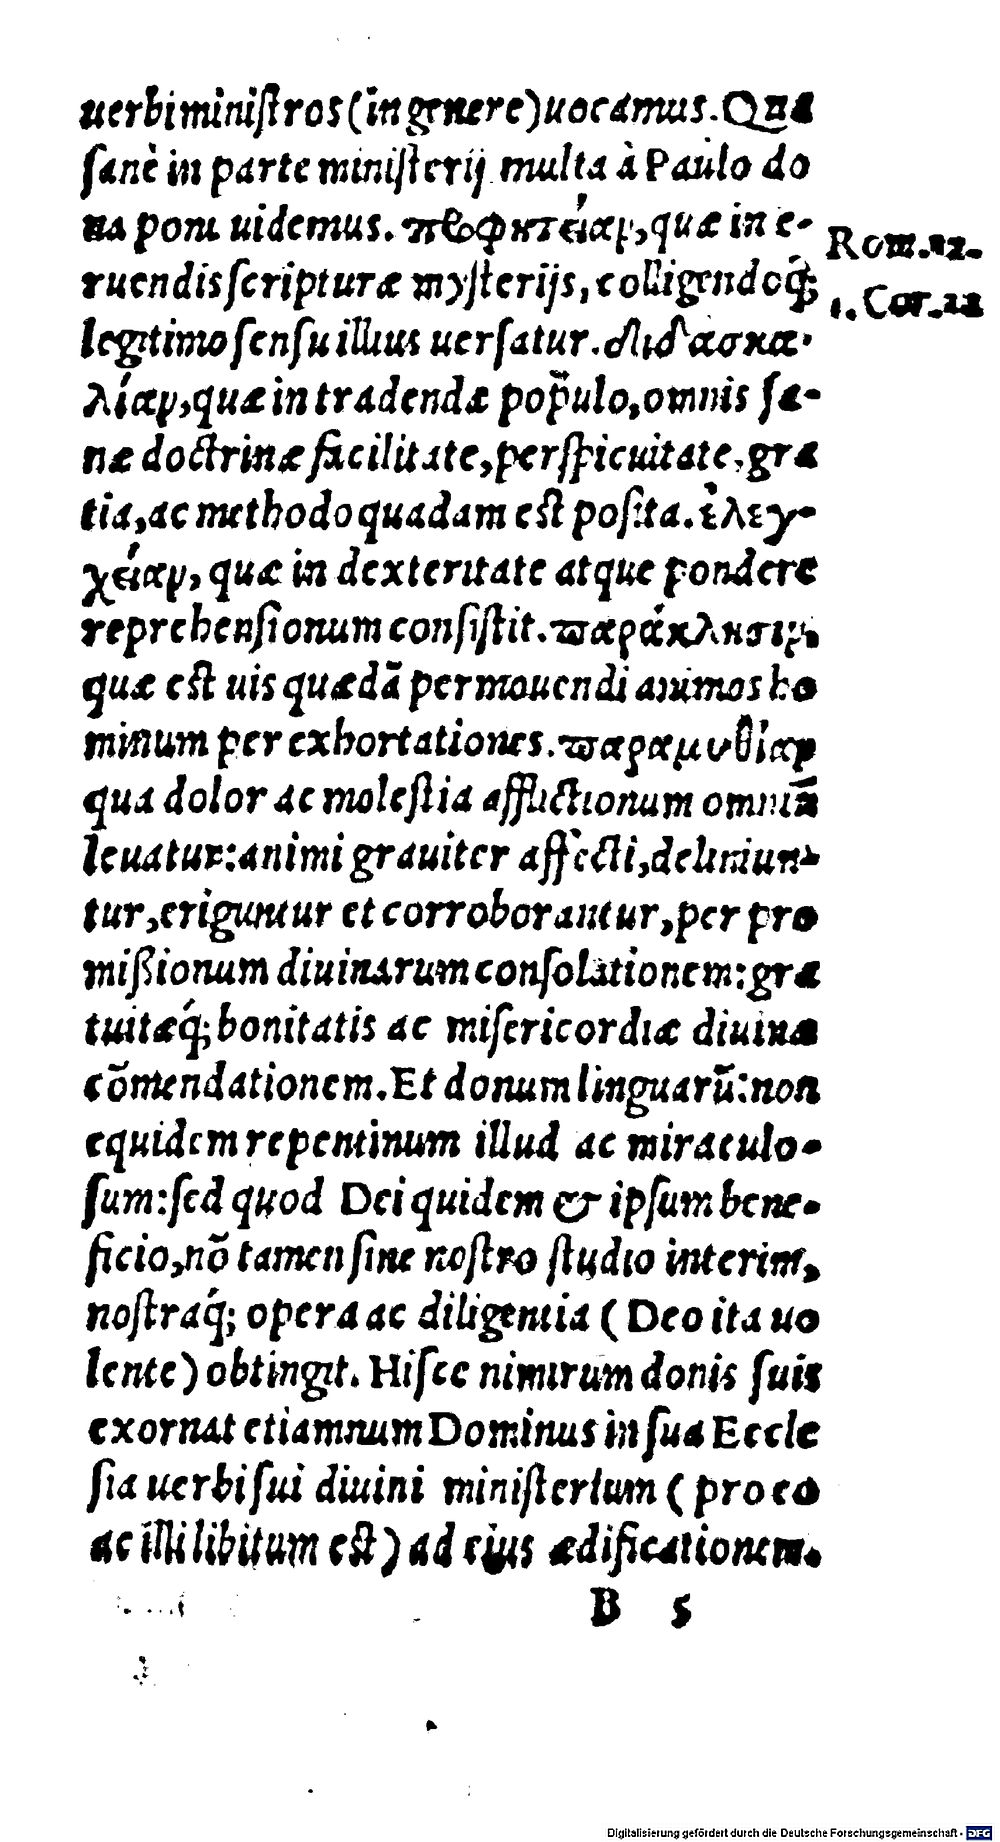 uerbi miniſtros (in genere) uocamus. Qua
ſanè in parte miniſterij multa à Paulo do
na poni uidemus. προφητείαν, quæ in e-
Rom. 12.
ruendis ſcripturæ myſterijs, colligendoq́;
1. Cor. 12
legitimo ſenſu illius uerſatur. διδασκα-
λίαν, quæ in tradendæ populo, omnis ſa-
næ doctrinæ facilitate, perſpicuitate, gra
tia, ac methodo quadam eſt poſita. ἐλεγ-
χείαν, quæ in dexteritate atque pondere
reprehenſionum conſiſtit. παράκλησιν,
quæ eſt uis quædā permouendi animos ho
minum per exhortationes. παραμυθίαν
qua dolor ac moleſtia afflictionum omniū
leuatur: animi grauiter affecti, deliniun-
tur, eriguntur et corroborantur, per pro
mißionum diuinarum conſolationem: gra
tuitæq́; bonitatis ac miſericordiæ diuinæ
cōmendationem. Et donum linguarū: non
equidem repentinum illud ac miraculo-
ſum: ſed quod Dei quidem & ipſum bene-
ficio, nō tamen ſine noſtro ſtudio interim,
noſtraq́; opera ac diligentia (Deo ita uo
lente) obtingit. Hiſce nimirum donis ſuis
exornat etiamnum Dominus in ſua Eccle
ſia uerbi ſui diuini miniſterium (pro eo
ac illi libitum eſt) ad eius ædificationem.
B 5
Digitalisierung gefördert durch die Deutsche Forschungsgemeinschaft - DFG